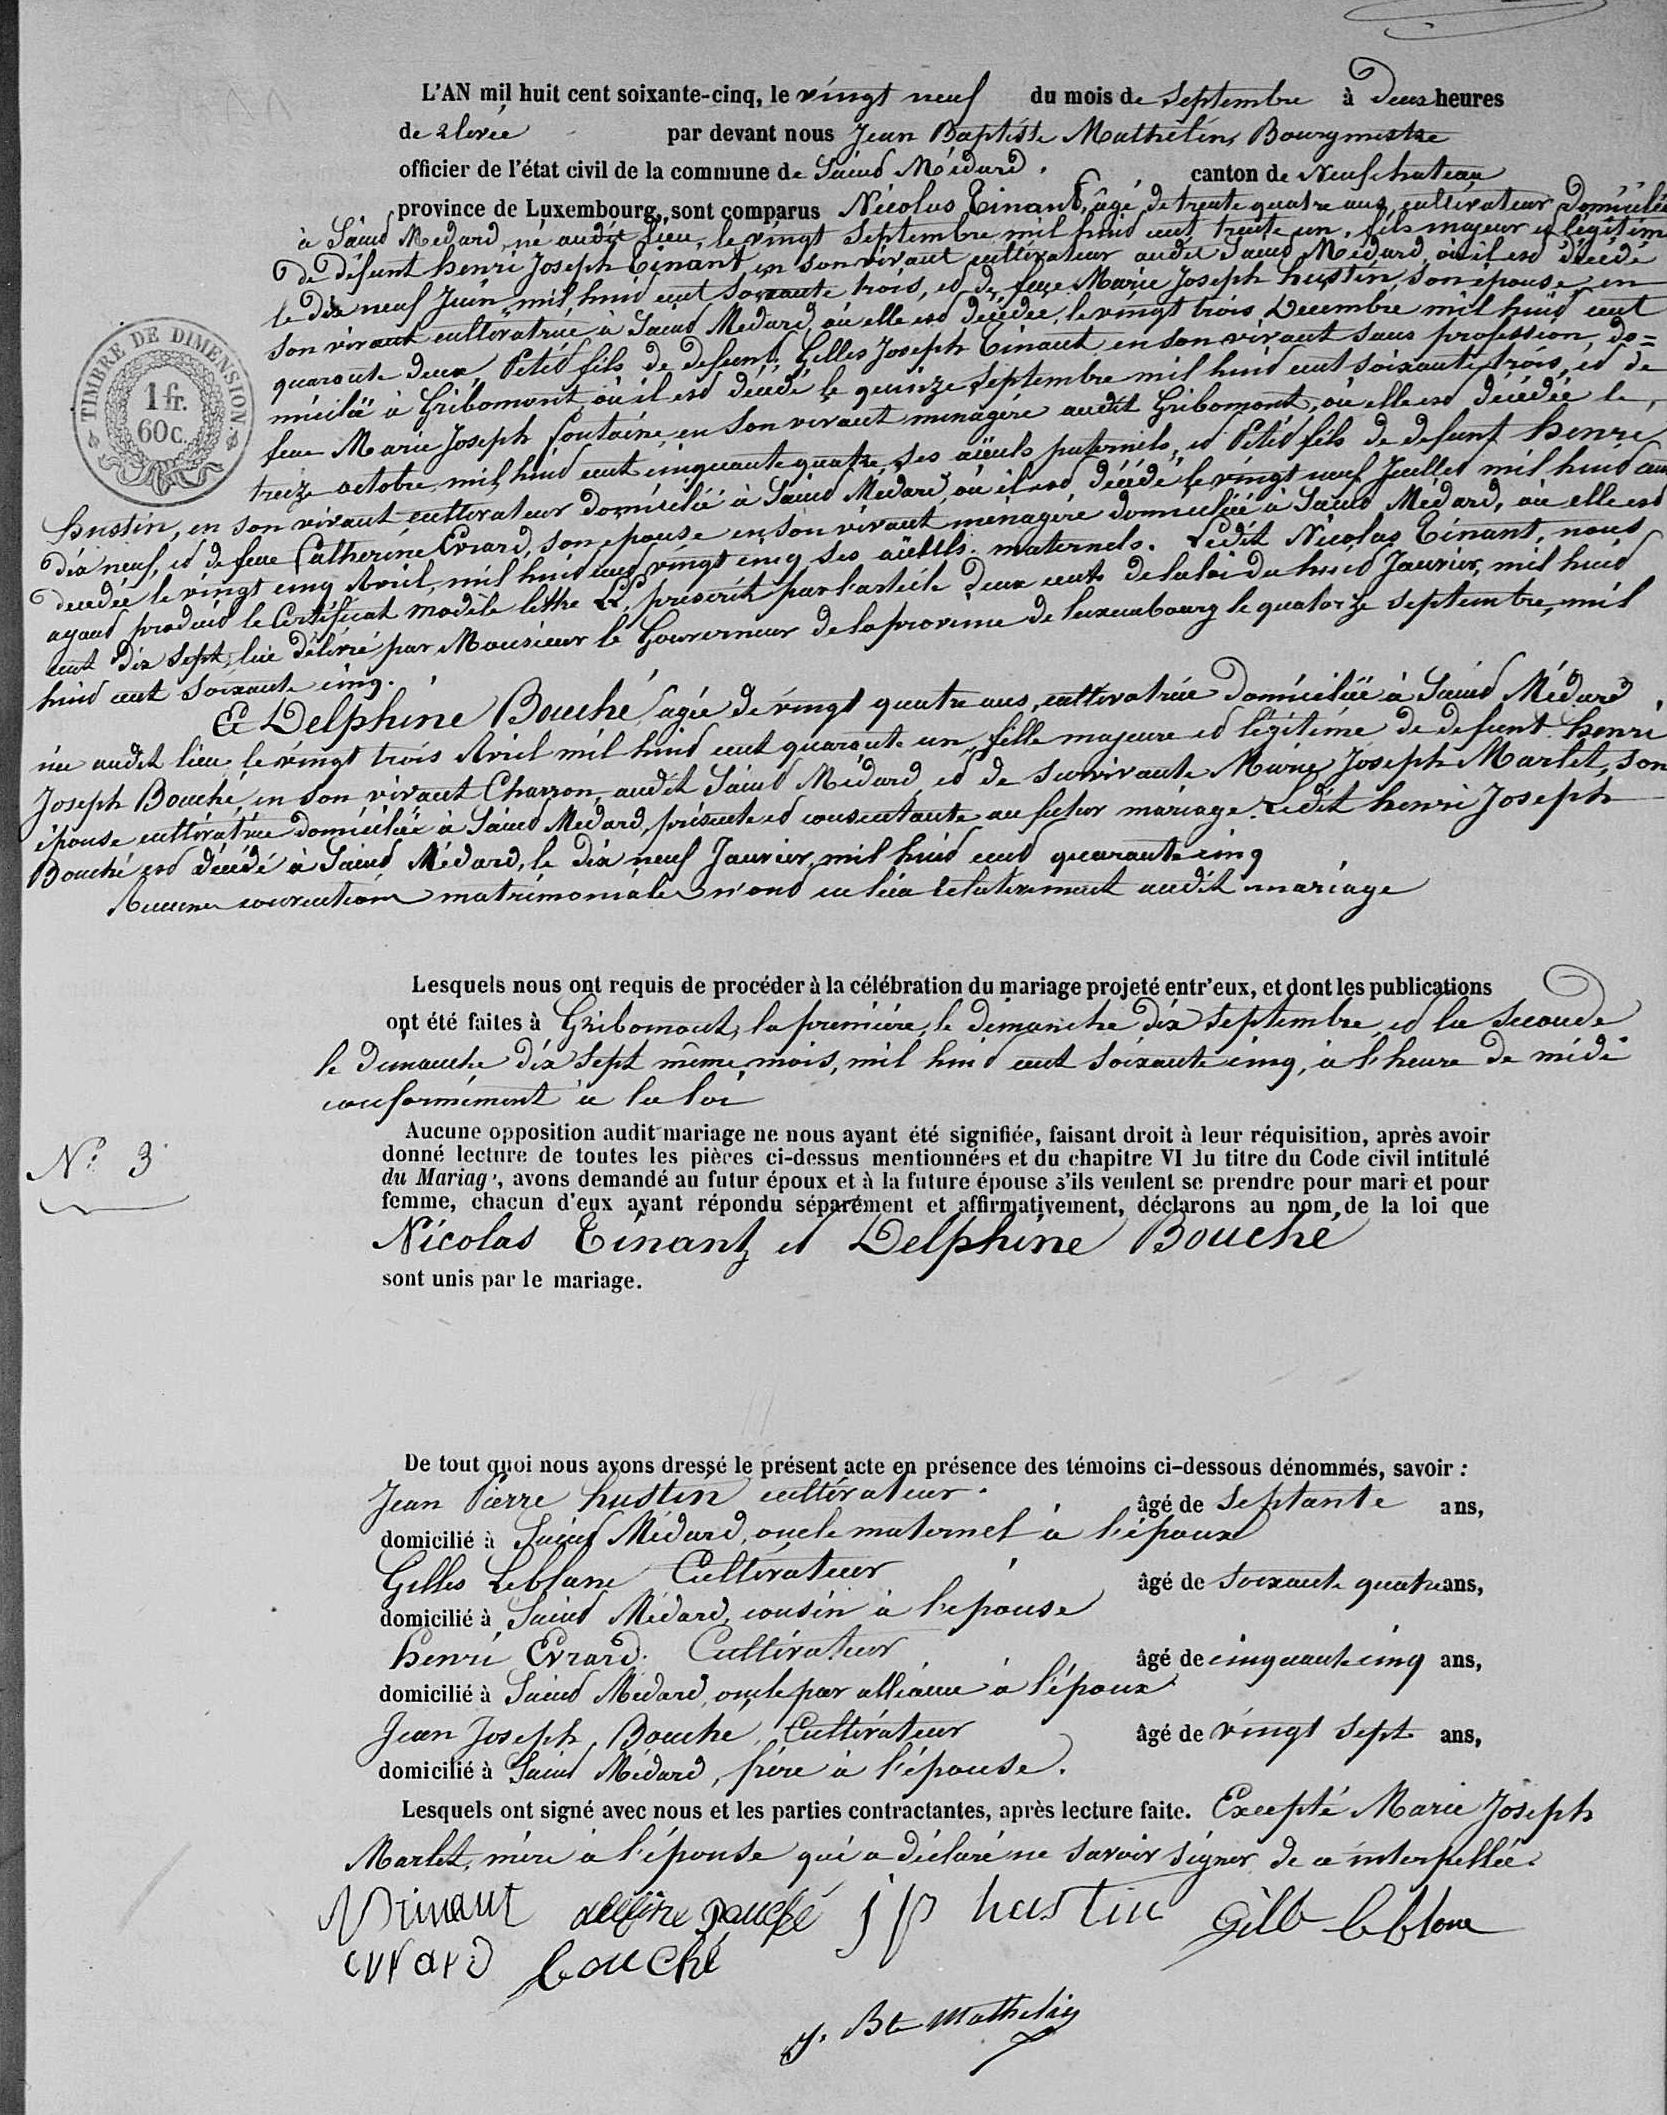 L'AN mil huit cent soixante-cinq, le vingt neuf du mois de Septembre à Deux heures
de relevée par devant nous Jean Baptiste Mathelin, Bourgmestre
officier de l'état civil de la commune de Saint Médard. canton de Neufchateau
province de Luxembourg, sont comparus Nicolas Tinant, âgé de trente quatre ans, cultivateur Domicilié
à Saint Médard, né audit lieu, le vingt Septembre mil huit cent trente un, fils majeur et légitime
de défunt henri Joseph Tinant, en son vivant cultivateur audit Saint Médard, où il est décédé
le dix neuf Juin mil huit cent soixante trois, et de feue Marie Joseph hustin, son épouse, en
son vivant cultivatrice à Saint Médard, où elle est décédée, le vingt trois Decembre mil huit cent
quarante deux, Petit fils de défunt Gilles Joseph Tinant, en son vivant sans profession, do=
micilié à Gribomont où il est décédé le quinze Septembre mil huit cent soixante trois, et de
feue Marie Joseph fontaine, en son vivant menagère audit Gribomont, où elle est décédée le,
treize octobre mil huit cent cinquante quatre, ses aïeuls paternels, et Petit fils de defunt henri
hustin, en son vivant cultivateur domicilié à Saint Médard, où il est décédé le vingt neuf Juillet mil huit cent
dix neuf, et de feue Catherine Evrard, son epouse en son vivant menagère domiciliée à Saint Médard, où elle est
decedée le vingt cinq Avril, mil huit cent vingt cinq ses aïeuls maternels. Ledit Nicolas Tinant, nous
ayant produit le Certificat modèle lettre prescrit par l'article deux cents de la loi du huit Janvier, mil huit
cent dix sept, lui délivré par Monsieur le Gouverneur de la province de luxembourg le quatorze septembre, mil
huit cent soixante cinq.
Et Delphine Bouché, agée de vingt quatre ans, cultivatrice Domiciliée à Saint Médard
née audit lieu, le vingt trois Avril mil huit cent quarante un, fille majeure et légitime de defunt henri
Joseph Bouché, en son vivant Charron, audit Saint Médard, et de survivante Marie Joseph Marlet, son
épouse cultivatrice domiciliée à Saint Médard, présente et consentante au futur mariage. Ledit henri Joseph
Bouché est décédé à Saint Médard, le dix neuf Janvier, mil huit cent quarante cinq
Aucunes conventions matrimoniales n'ont eu lieu relativement audit mariage
Lesquels nous ont requis de procéder à la célébration du mariage projeté entr'eux, et dont les publications
ont été faites à Gribomont, la première, le dimanche dix septembre et la Seconde
le dimanche dix Sept même mois, mil huit cent soixante cinq, à l'heure de midi
conformément à la loi
N° 3
Aucune opposition audit mariage ne nous ayant été signifiée, faisant droit à leur réquisition, après avoir
donné lecture de toutes les pièces ci-dessus mentionnées et du chapitre VI du titre du Code civil intitulé
du Mariag, avons demandé au futur époux et à la future épouse s'ils veulent se prendre pour mari et pour
femme, chacun d'eux ayant répondu séparément et affirmativement, déclarons au nom de la loi que
Nicolas Tinant, et Delphine Bouché
sont unis par le mariage.
De tout quoi nous avons dressé le présent acte en présence des témoins ci-dessous dénommés, savoir :
Jean Pierre hustin cultivateur. âgé de Septante ans,
domicilié à Saint Médard, oncle maternel à l'époux
Gilles Leblanc Cultivateur âgé de soixante quatre ans,
domicilié à Saint Médard, cousin à l'épouse
henri Evrard. Cultivateur âgé de cinquante cinq ans,
domicilié à Saint Médard, oncle par alliance à l'époux
Jean Joseph Bouché, Cultivateur âgé de vingt sept ans,
domicilié à Saint Médard, frère à l'épouse.
Lesquels ont signé avec nous et les parties contractantes, après lecture faite. Excepté Marie Joseph
Marlet, mère à l'épouse qui a déclaré ne savoir signer de ce interpellée.
N Tinant delfine Bouché j p hustin Gille leblanc
evrard bouché
J. Bte Mathelin
TIMBRE DE DIMENSION.
1 fr.
60 c.